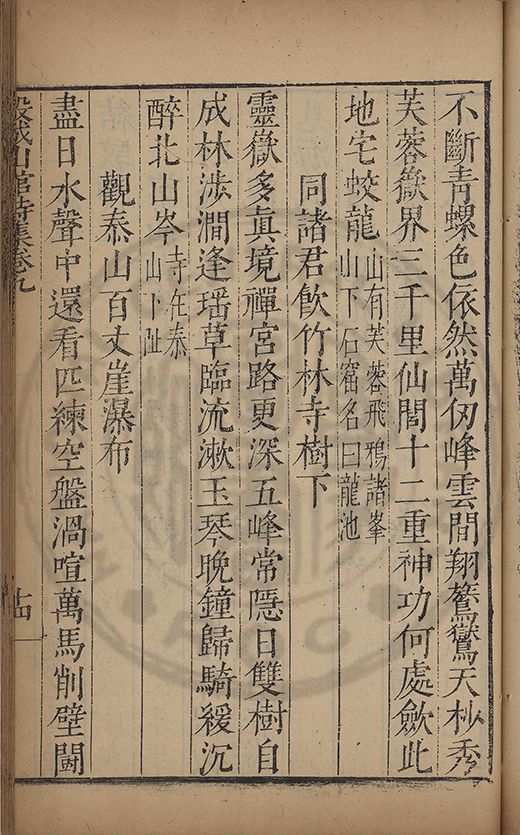 不斷青螺色依然萬仞峰雲間翔鸑鷟天杪秀
芙蓉嶽界三千里仙閣十二重神功何處歛此
地宅蛟龍山有芙蓉飛鴉諸峯
山下石窟名曰龍池
同諸君飲竹林寺樹下
靈嶽多眞境禪宮路更深五峰常隱日雙樹自
成林涉澗逢瑶草臨流漱玉琴晚鐘歸騎緩沉
醉北山岑寺在泰
山卜趾
觀泰山百丈崖瀑布
盡日水聲中還看匹練空盤渦喧萬馬削壁鬪
山館詩集卷九